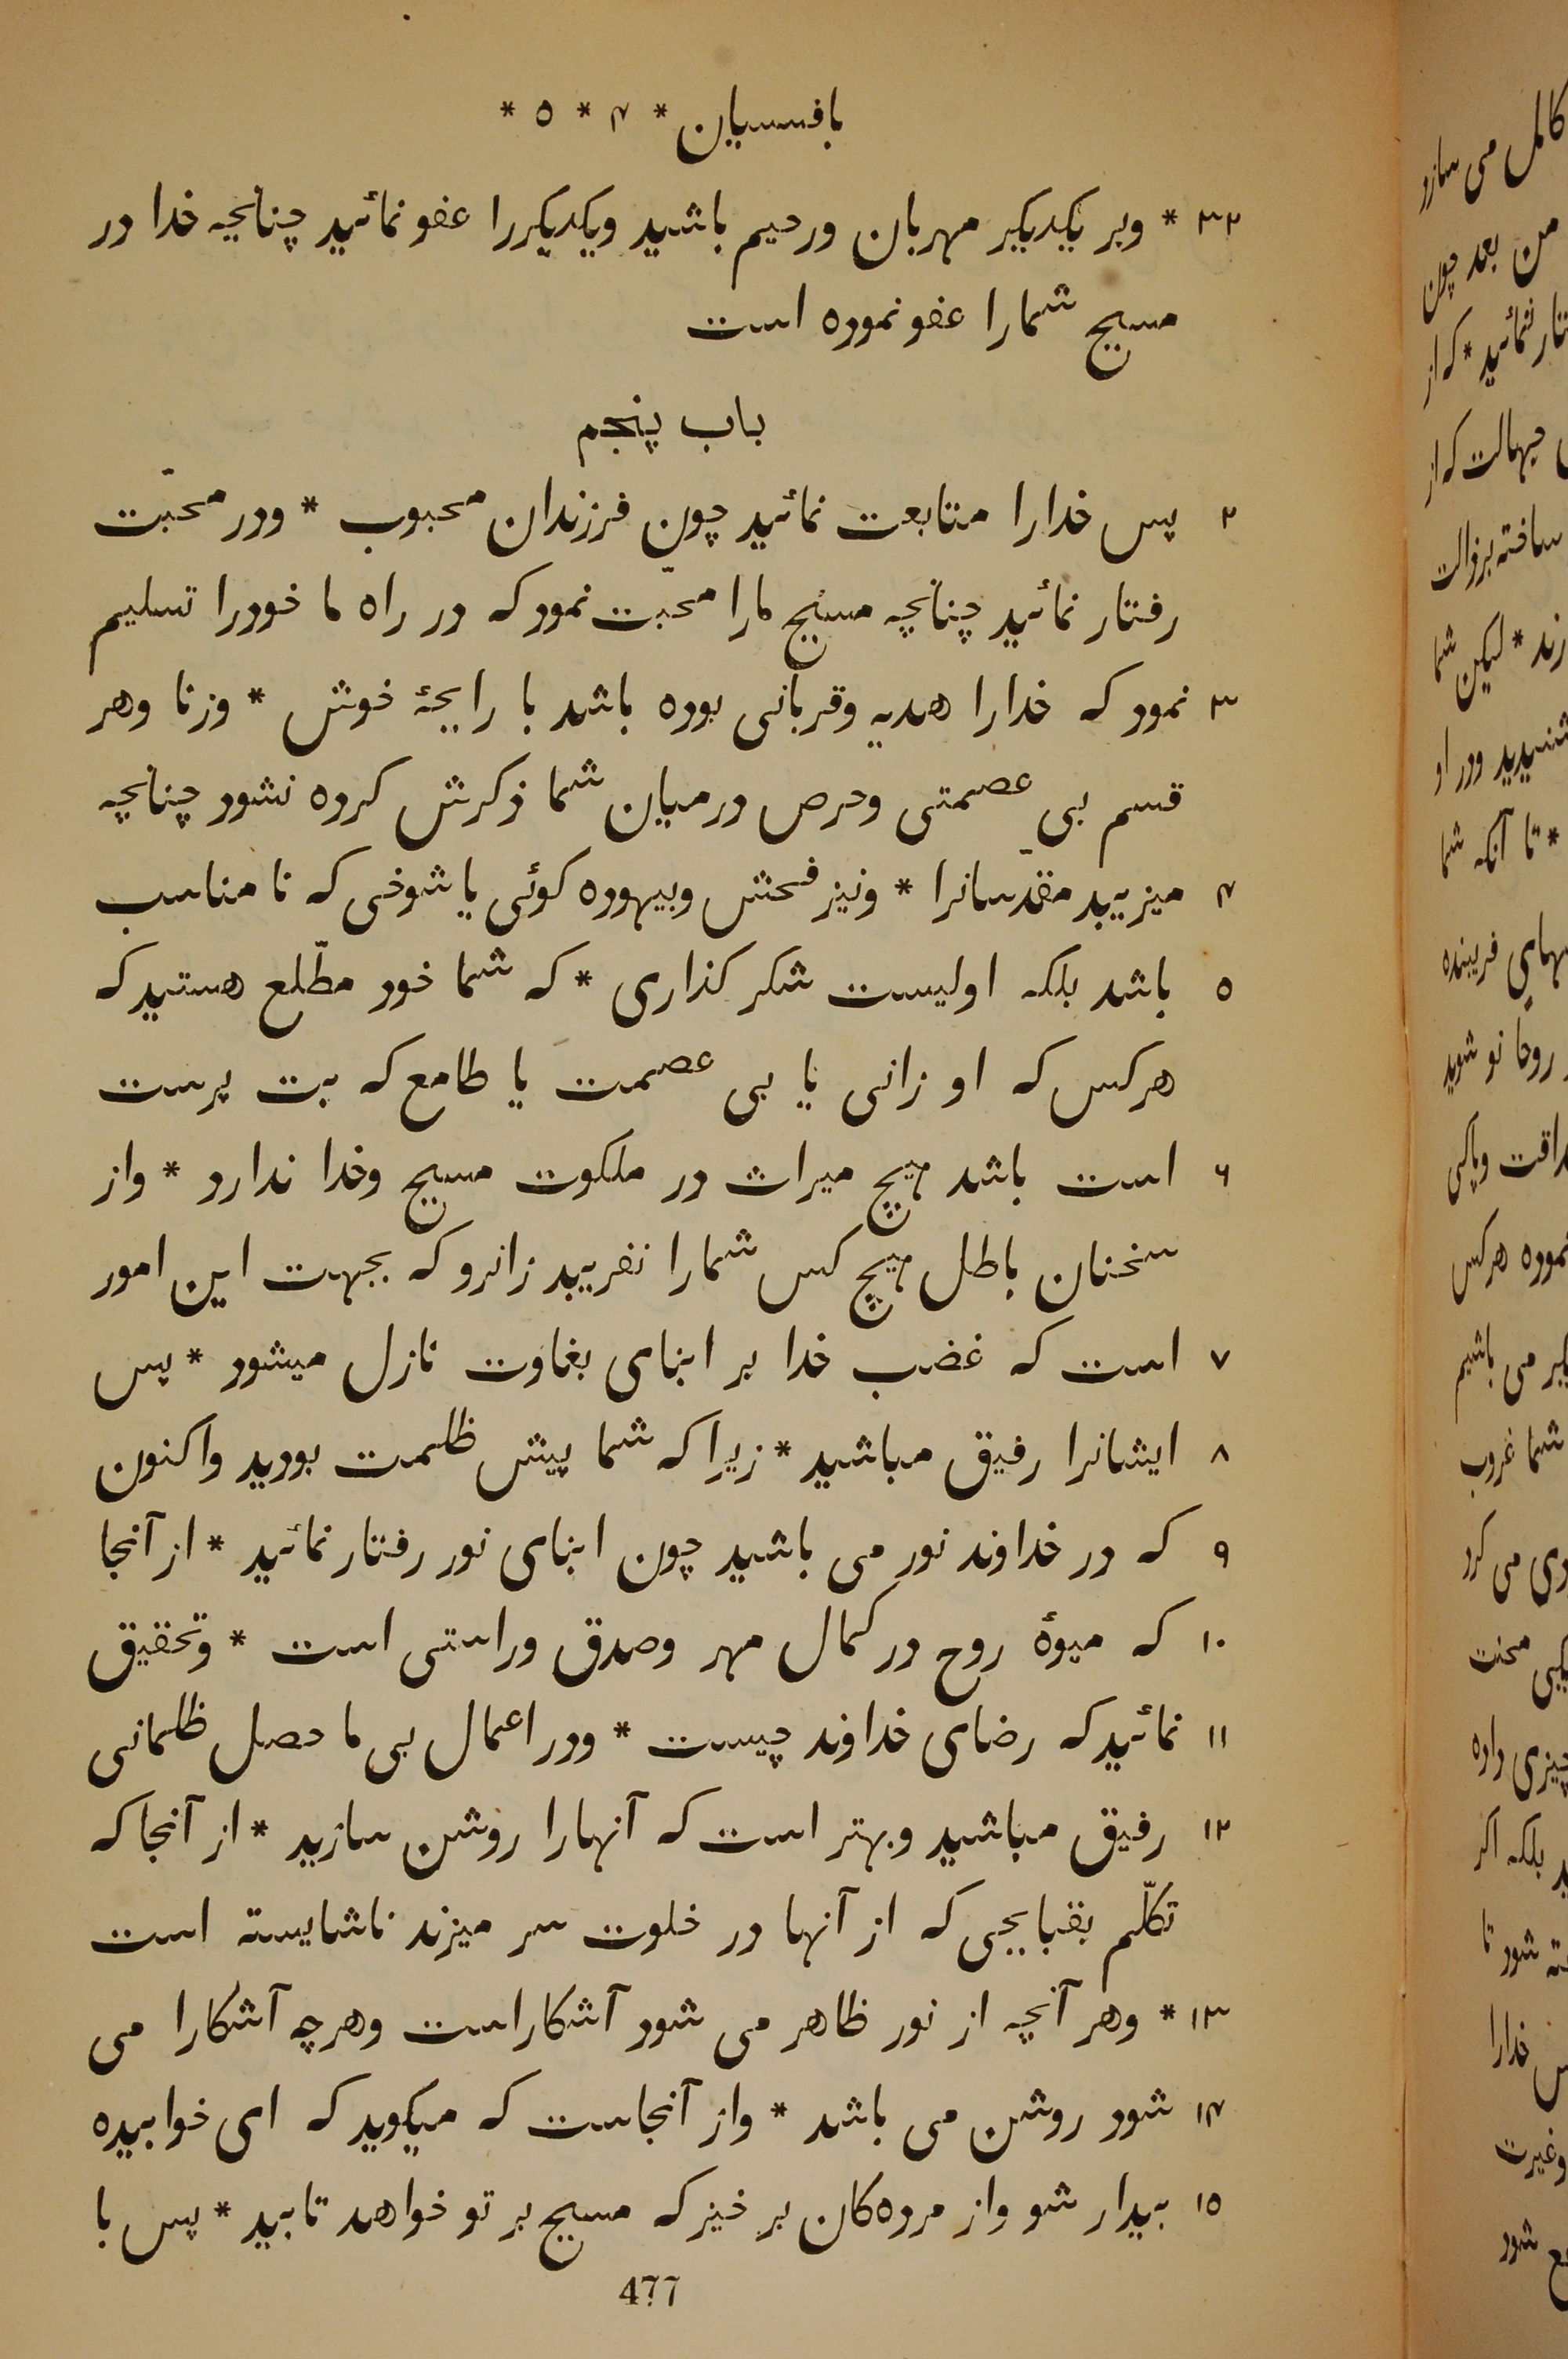 بافسسیان * ۴ * ۵ *
۳۲ * وبر یکدیکر مهربان ورحیم باشید ویکدیکررا عفو نمائید چنانچه خدا در
مسیح شمارا عفو نموده است
باب پنجم
۲ پس خدارا متابعت نمائید چون فرزندان محبوب * ودر محبّت
رفتار نمائید چنانچه مسیح مارا محبّت نمود که در راه ما خودرا تسلیم
۳ نمود که خدارا هدیه وقربانی بوده باشد با رایحهٔ خوش * وزنا وهر
قسم بی عصمتی وحرص درمیان شما ذکرش کرده نشود چنانچه
۴ میزیبد مقدّسانرا * ونیز فحش وبیهوده کوئی یا شوخی که نا مناسب
۵ باشد بلکه اولیست شکر کذاری * که شما خود مطّلع هستید که
هرکس که او زانی یا بی عصمت یا طامع که بت پرست
۶ است باشد هیچ میراث در ملکوت مسیح وخدا ندارد * واز
سخنان باطل هیچ کس شمارا نفریبد زانرو که بجهت این امور
۷ است که غضب خدا بر ابنای بغاوت نازل میشود * پس
۸ ایشانرا رفیق مباشید * زیرا که شما پیش ظلمت بودید واکنون
۹ که در خداوند نور می باشید چون ابنای نور رفتار نمائید * از آنجا
۱۰ که میوهٔ روح در کمال مهر وصدق وراستی است * وتحقیق
۱۱ نمائید که رضای خداوند چیست * ودر اعمال بی ما حصل ظلمانی
۱۲ رفیق مباشید وبهتر است که آنهارا روشن سازید * از آنجا که
تکلّم بقبایحی که از آنها در خلوت سر میزند ناشایسته است
۱۳ * وهر آنچه از نور ظاهر می شود آشکاراست وهرچه آشکارا می
۱۴ شود روشن می باشد * واز آنجاست که میکوید که ای خوابیده
۱۵ بیدار شو واز مرده‌کان بر خیز که مسیح بر تو خواهد تابید * پس با
477
کامل می سازد
من بعد چون
نمائید * که از
جهالت که از
ساخته برذالت
لیکن شما
شنیدید ودر او
* تا آنکه شما
فریبنده
روحا نو شوید
وپاکی
نموده هرکس
می باشیم
شما غروب
می کرد
محنت
چیزی داده
بلکه اکر
شود تا
خدارا
وغیرت
شود